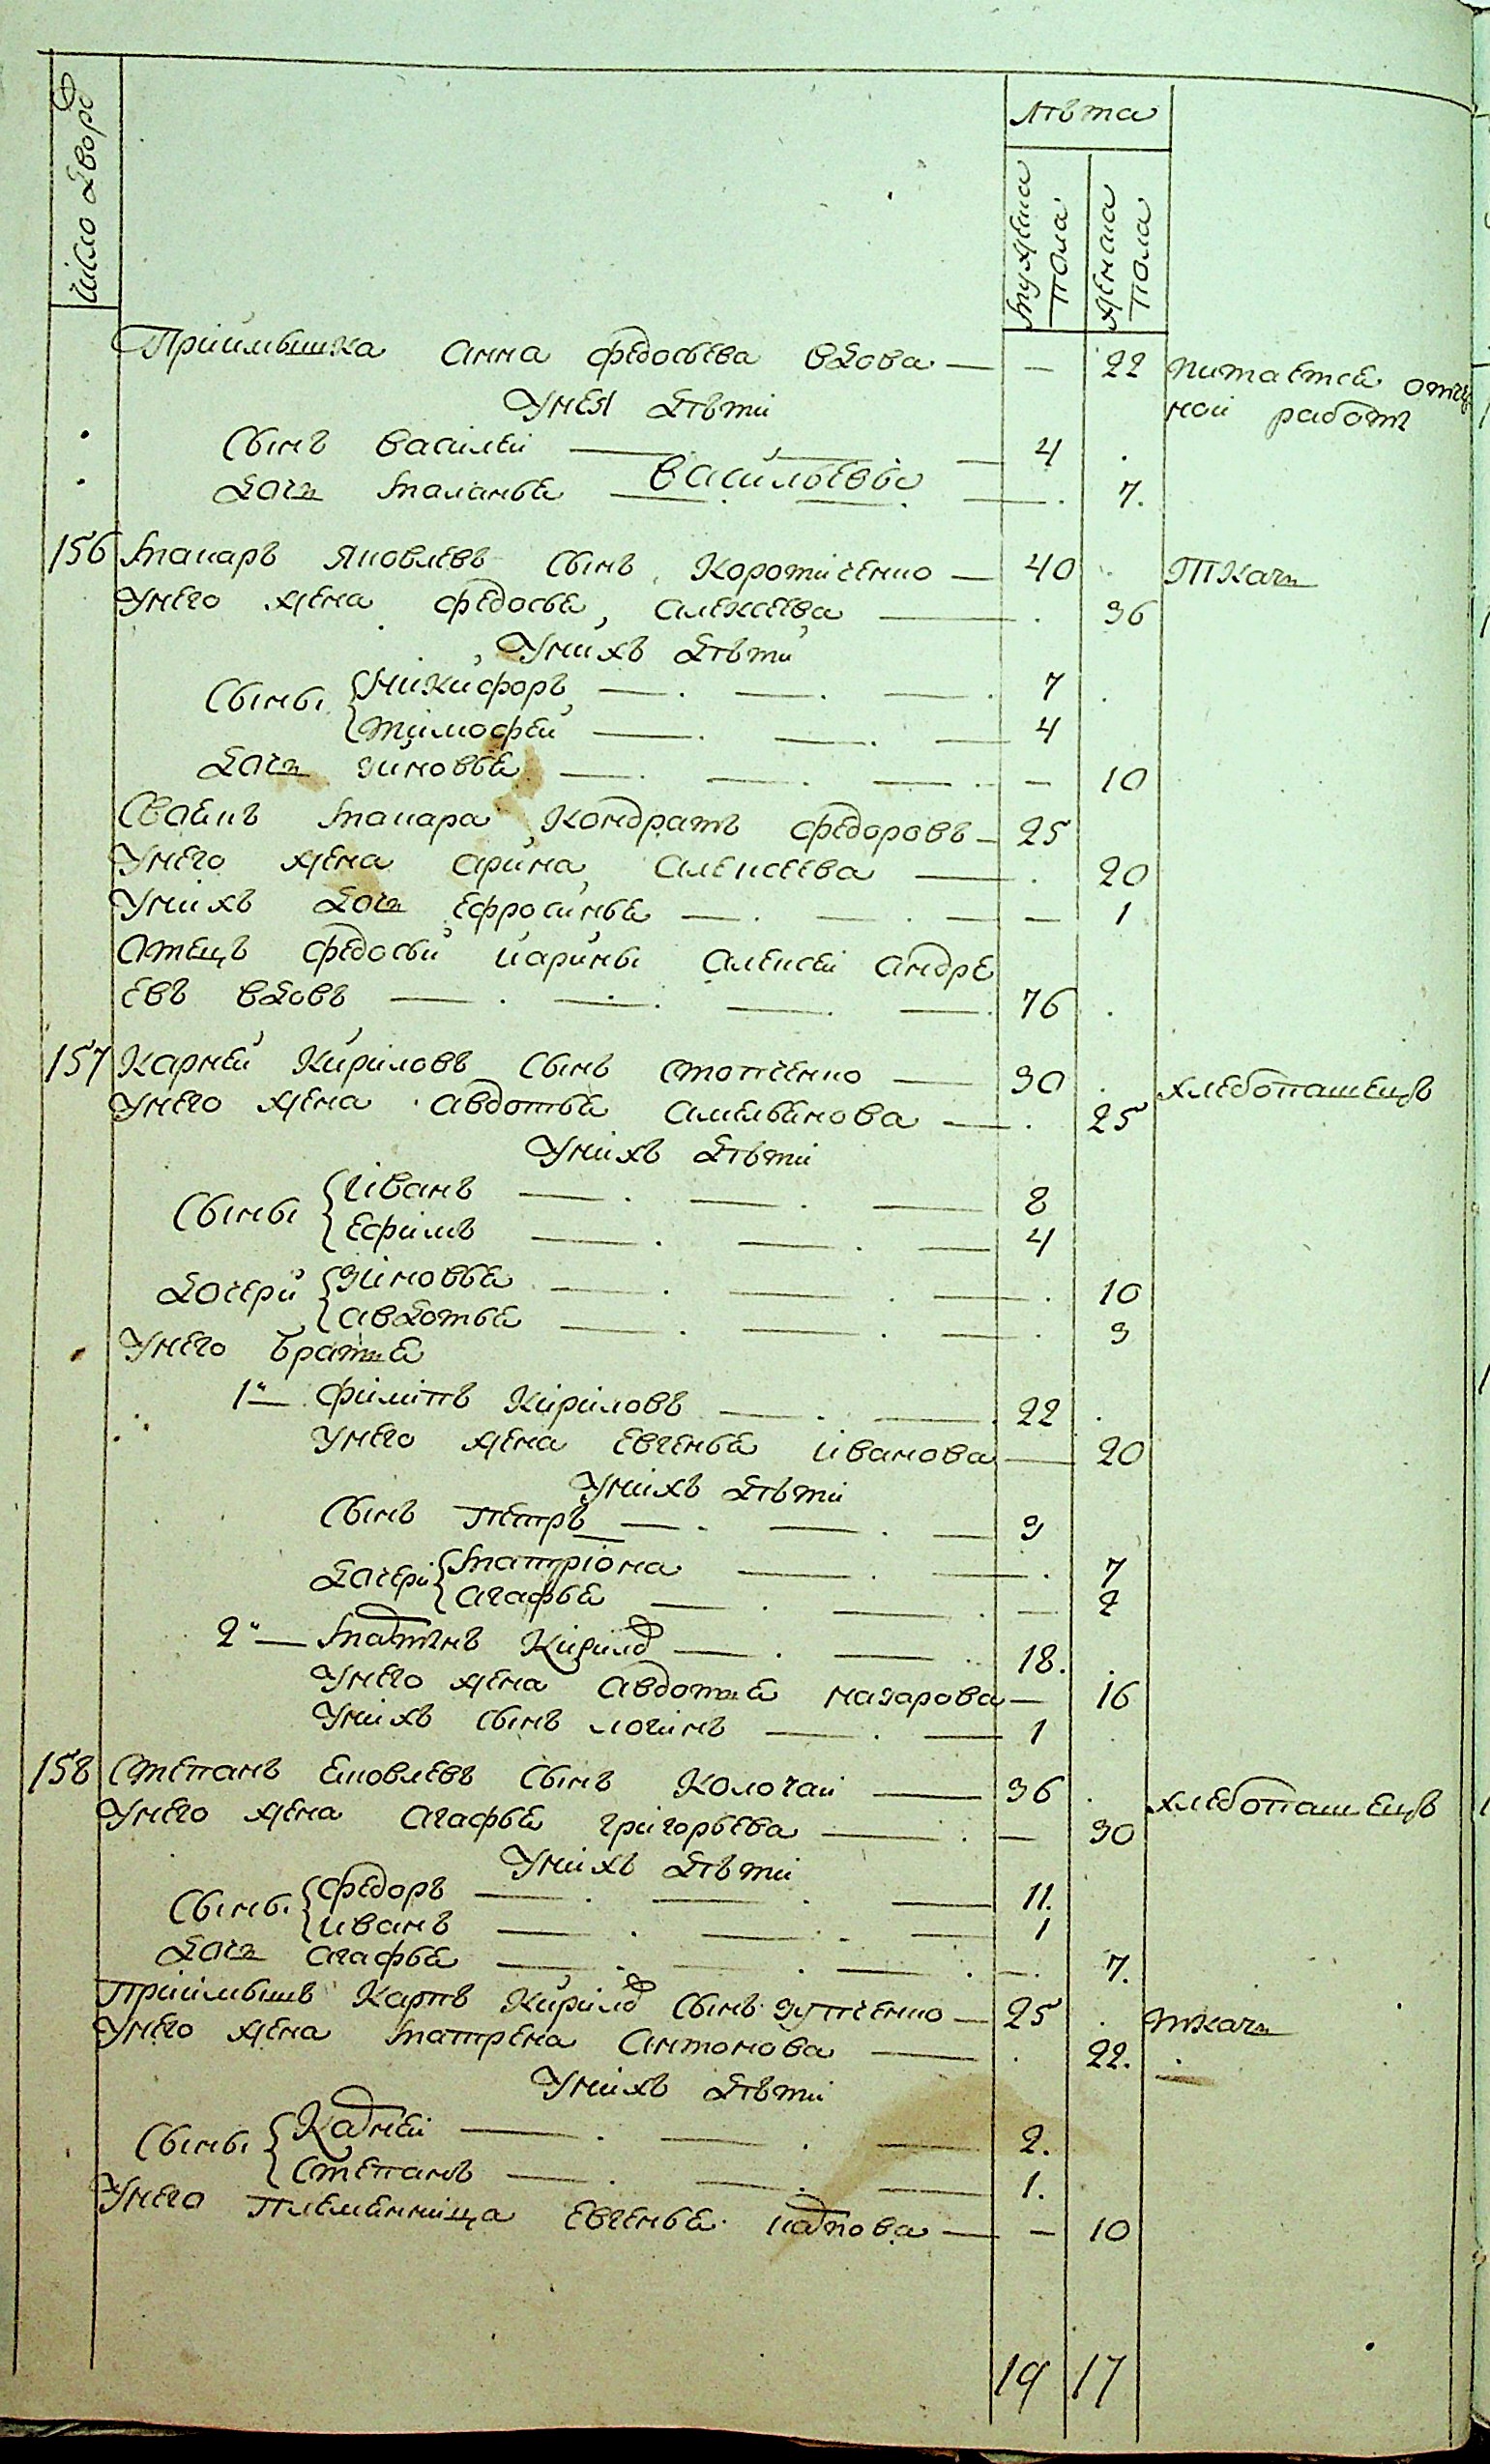 Число дворѡ
Лѣта
мужеска пола
женска пола
Пріимышка Анна Федосьева вдова — — 22 питается отчу
ной работ
У нея дѣти
Сынъ Василей — 4 .
Васильевы
дочь Маланья — . 7.
156 Макаръ Яковлевъ сынъ Коротченко — 40 . Ткачь
У него жена Федосья Алексеева — . 36
У нихъ дѣти
Сыны { Никифоръ — 7 .
Тимофей — 4
дочь Зиновья — — 10
Своякъ Макара Кондратъ Федоровъ — 25
У него жена Арина Алексеева — . 20
У нихъ дочь Ефросинья — — 1
Отецъ Федосьи и Арины Алексей Андре
евъ вдовъ — 76 .
157 Карней Кириловъ сынъ Стопченко — 30 . хлебопашецъ
У него жена Авдотья Амельянова — . 25
У нихъ дѣти
Сыны { Иванъ — 8
Ефимъ — 4
дочери { Зиновья — . 10
Авдотья — . 3
У него братья
1й — Филипъ Кириловъ — 22 .
У него жена Евгенья Иванова — 20
У нихъ дѣти
Сынъ Петръ — 3
дочери { Матріона — . 7
Агафья — — 2
2й — Мартинъ Кирилѡ — 18.
У него жена Авдотья Назарова — 16
У нихъ сынъ Логинъ — 1
158 Степанъ Яковлевъ сынъ Колочай — 36 . хлебопашецъ
У него жена Агафья Григорьева — — 30
У нихъ дѣти
Сыны { Федоръ — 11.
Иванъ — 1
дочь Агафья — — 7.
Пріимышъ Карпъ Кирилѡ сынъ Зупченко — 25 . ткачь
У него жена Матрена Антонова — . 22.
У нихъ дѣти
Сыны { Карней — 2.
Степанъ — 1.
У него племянница Евгенья Карпова — — 10
19 17